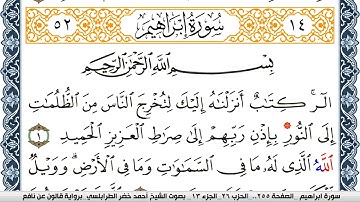 ١٤ سُورَةُ إِبْرَاهِيمَ ٥٢
بِسْمِ اللَّهِ الرَّحْمَٰنِ الرَّحِيمِ
الٓر۪ كِتَٰبٌ أَنزَلْنَٰهُ إِلَيْكَ لِتُخْرِجَ النَّاسَ مِنَ الظُّلُمَٰتِ
إِلَى النُّورِ بِإِذْنِ رَبِّهِمْ إِلَىٰ صِرَٰطِ الْعَزِيزِ الْحَمِيدِ ١
اللَّهُ الَّذِي لَهُ مَا فِي السَّمَٰوَٰتِ وَمَا فِي الْأَرْضِ وَوَيْلٌ
سورة ابراهيم . الصفحة ٢٥٥.. الحزب ٢٦ . الجزء ١٣ . بصوت الشيخ أحمد خضر الطرابلسي . برواية قالون عن نافع